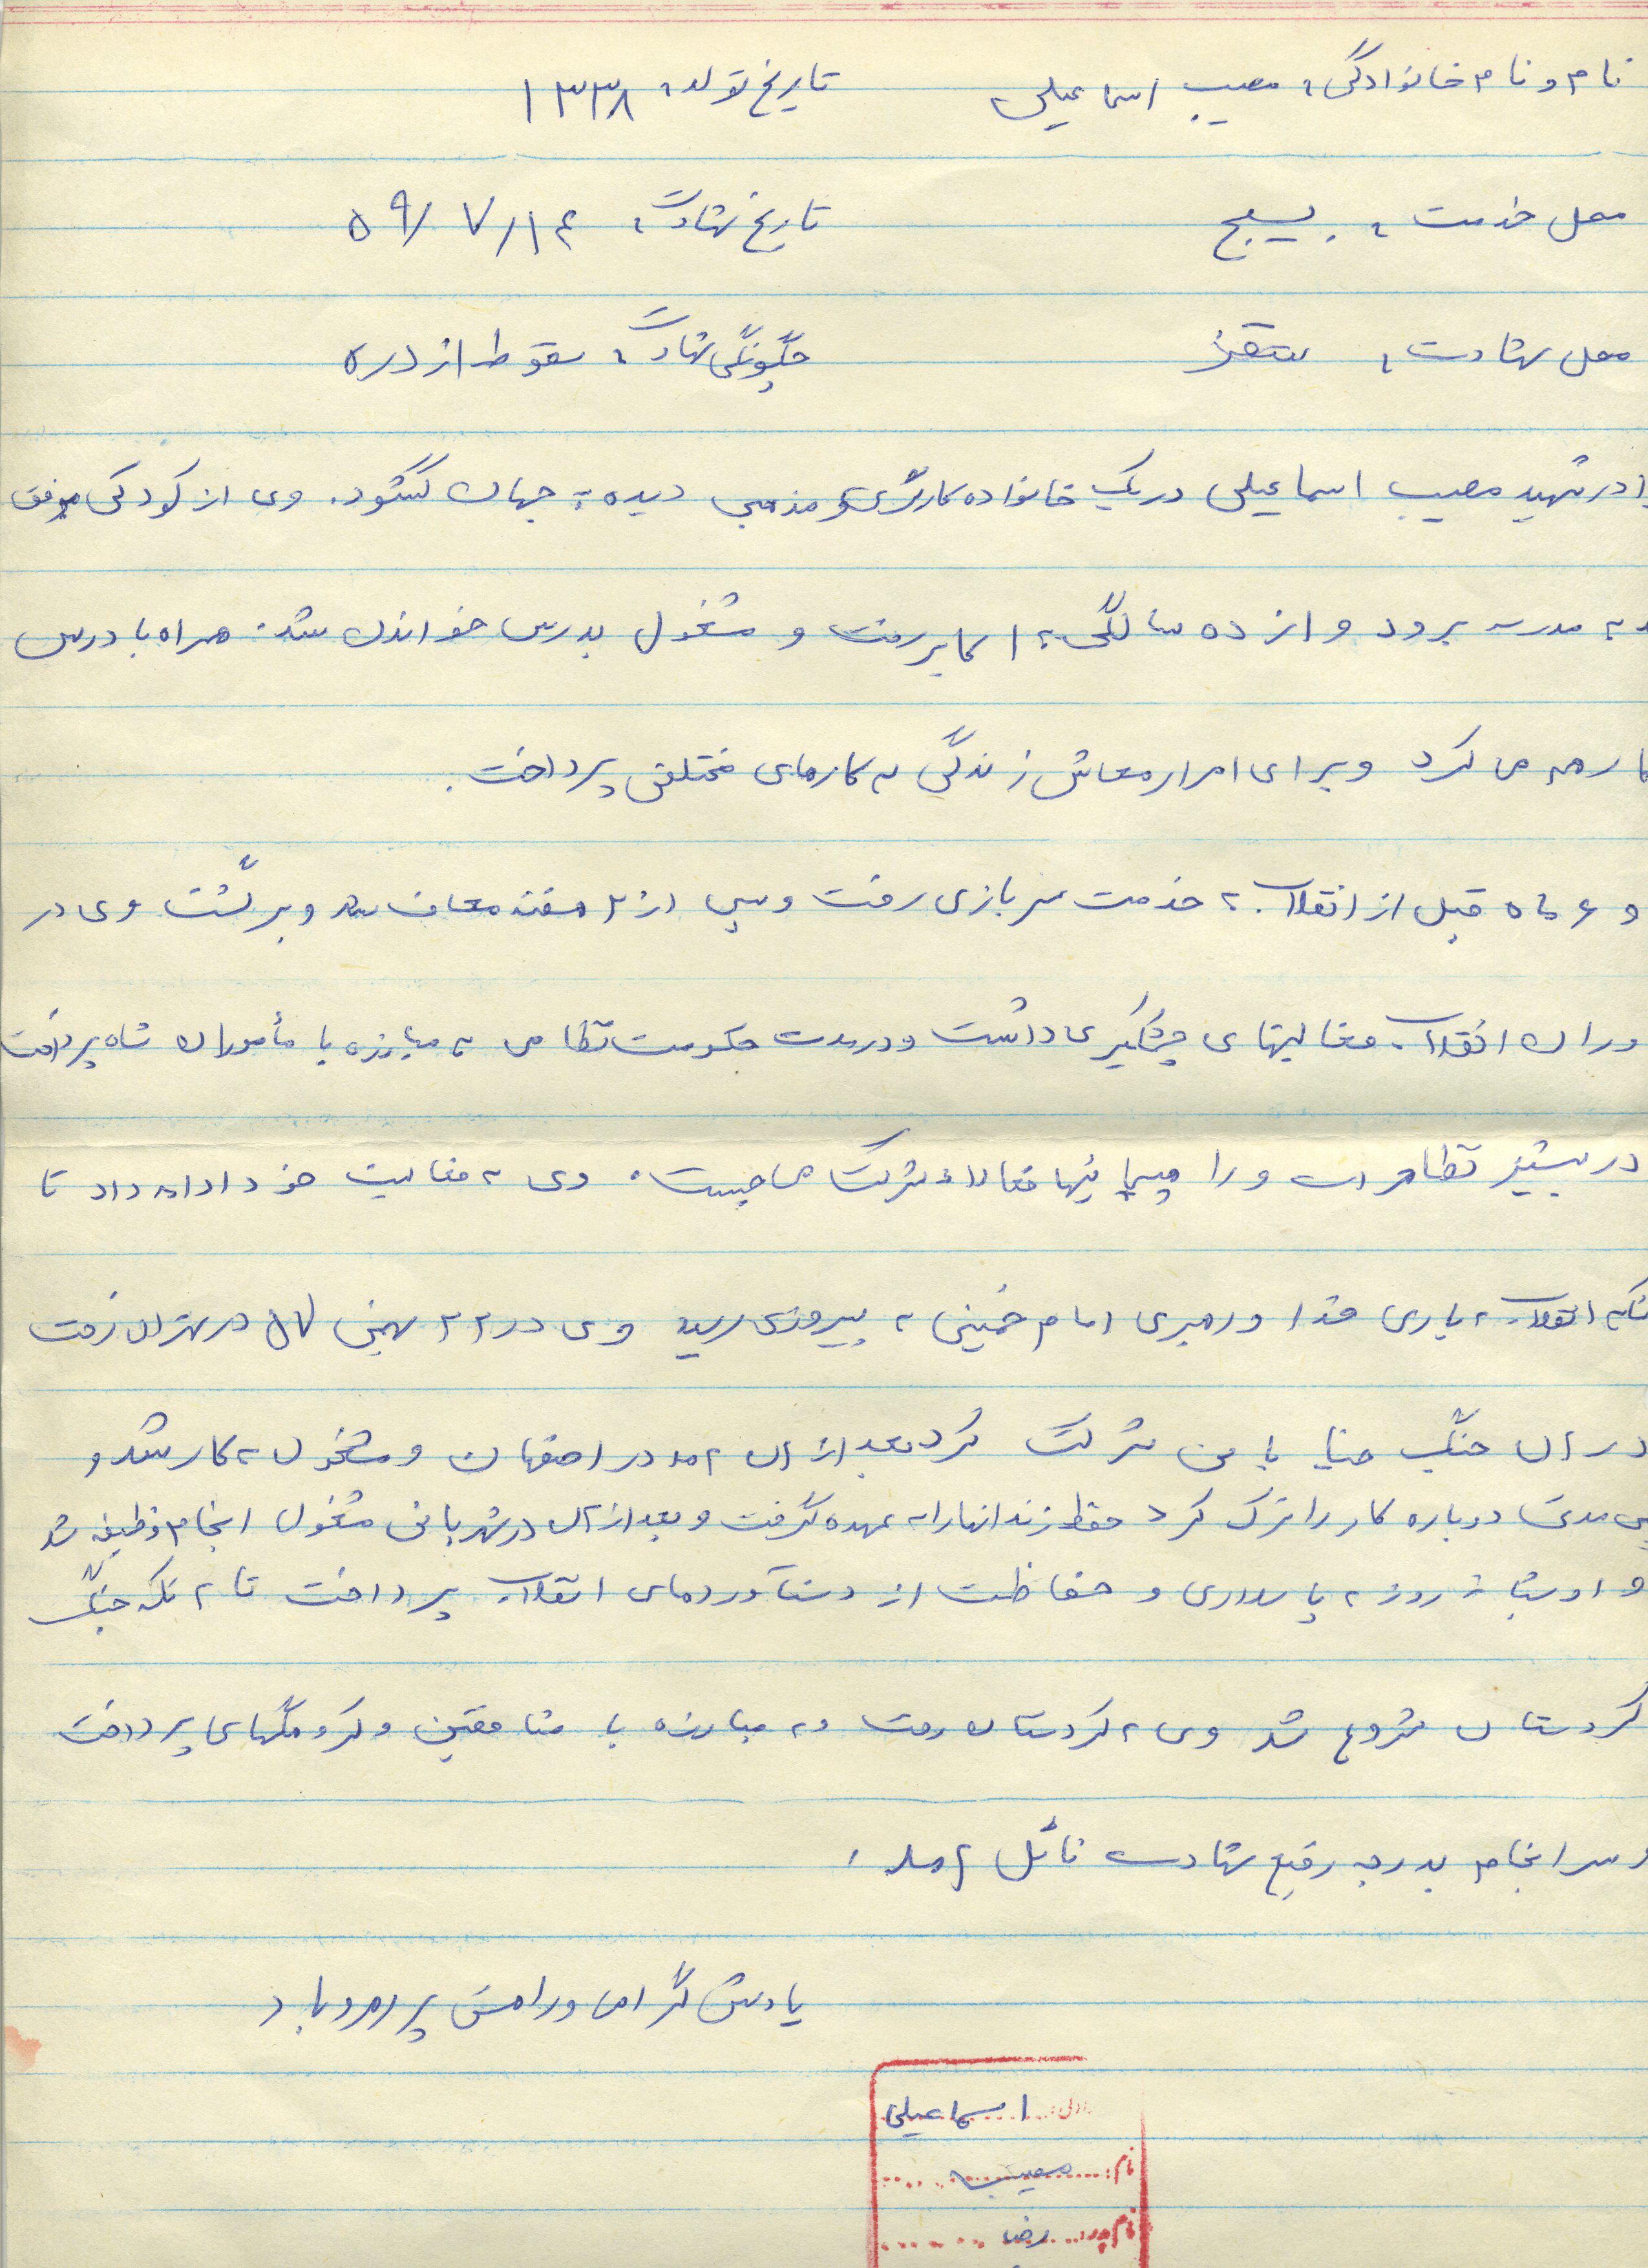 نام و نام خانوادگی: مصیب اسماعیلی تاریخ تولد: ۱۳۳۸
محل خدمت: بسیج تاریخ شهادت: ۵۹/۷/۱۴
محل شهادت: سقز چگونگی شهادت: سقوط از دره
ادر شهید مصیب اسماعیلی در یک خانواده کارگری و مذهبی دیده به جهان گشود. وی از کودکی موفق
به مدرسه برود و از ده سالگی به اکابر رفت و مشغول بدرس خواندن شد. همراه با درس
کار هم می کرد و برای امرار معاش زندگی به کارهای مختلفی پرداخت.
و ۶ ماه قبل از انقلاب به خدمت سربازی رفت و پس از ۲ هفته معاف شد و برگشت وی در
وران انقلاب فعالیتهای چشگیری داشت و در مدت حکومت نظامی به مبارزه با مأموران شاه پرداخت
در بیشتر تظاهرات و راهپیمائیها فعالانه شرکت می جست. وی به فعالیت خود ادامه داد تا
انقلاب به یاری خدا و رهبری امام خمینی به پیروزی رسید وی در ۲۲ بهمن ۵۷ در تهران رفت
در آن جنگ خیابانی شرکت کرد بعد از آن آمد در اصفهان و مشغول به کار شد و
پس مدتی دوباره کار را ترک کرد حفظ زندانها را به عهده گرفت و بعد از آن در شهربانی مشغول انجام وظیفه شد
و او شبانه روز به پاسداری و حفاظت از دستآوردهای انقلاب پرداخت تا آنکه جنگ
کردستان شروع شد وی به کردستان رفت و به مبارزه با منافقین و گروهکهای پرداخت
و سرانجام بدرجه رفیع شهادت نائل آمد.
یادش گرامی و راهش پر رهرو باد
اسماعیلی
نام: مصیب
نام پدر: رضا